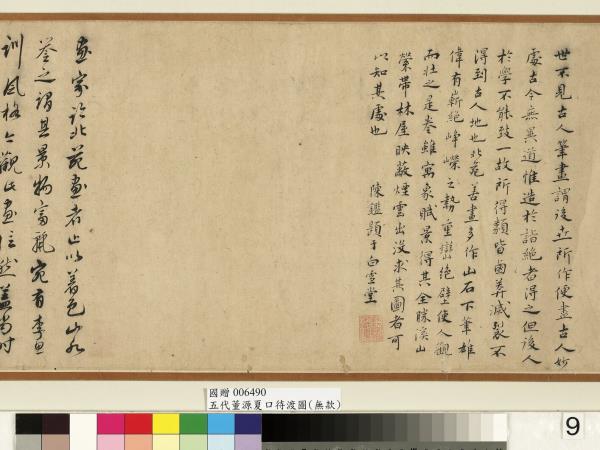 世不見古人筆畫謂後世所作便盡古人妙
處古今無異道惟造於詣絕者得之但後人
於學不能致一故所得類皆鹵莽滅裂不
得到古人地也北苑善畫多作山石下筆雄
偉有嶄絕崢嶸之勢重巒絕壁使人觀
而壯之是卷雖寓象賦景得其全勝溪山
縈帶林屋映蔽煙雲出沒求其圖者可
以知其處也 陳鑑題于白雪堂
畫家論北苑畫者止以著色山水
譽之謂其景物富麗宛有李思
訓風格今觀此畫信然蓋當時
國贈 006490
五代董源夏口待渡圖(無款)
9